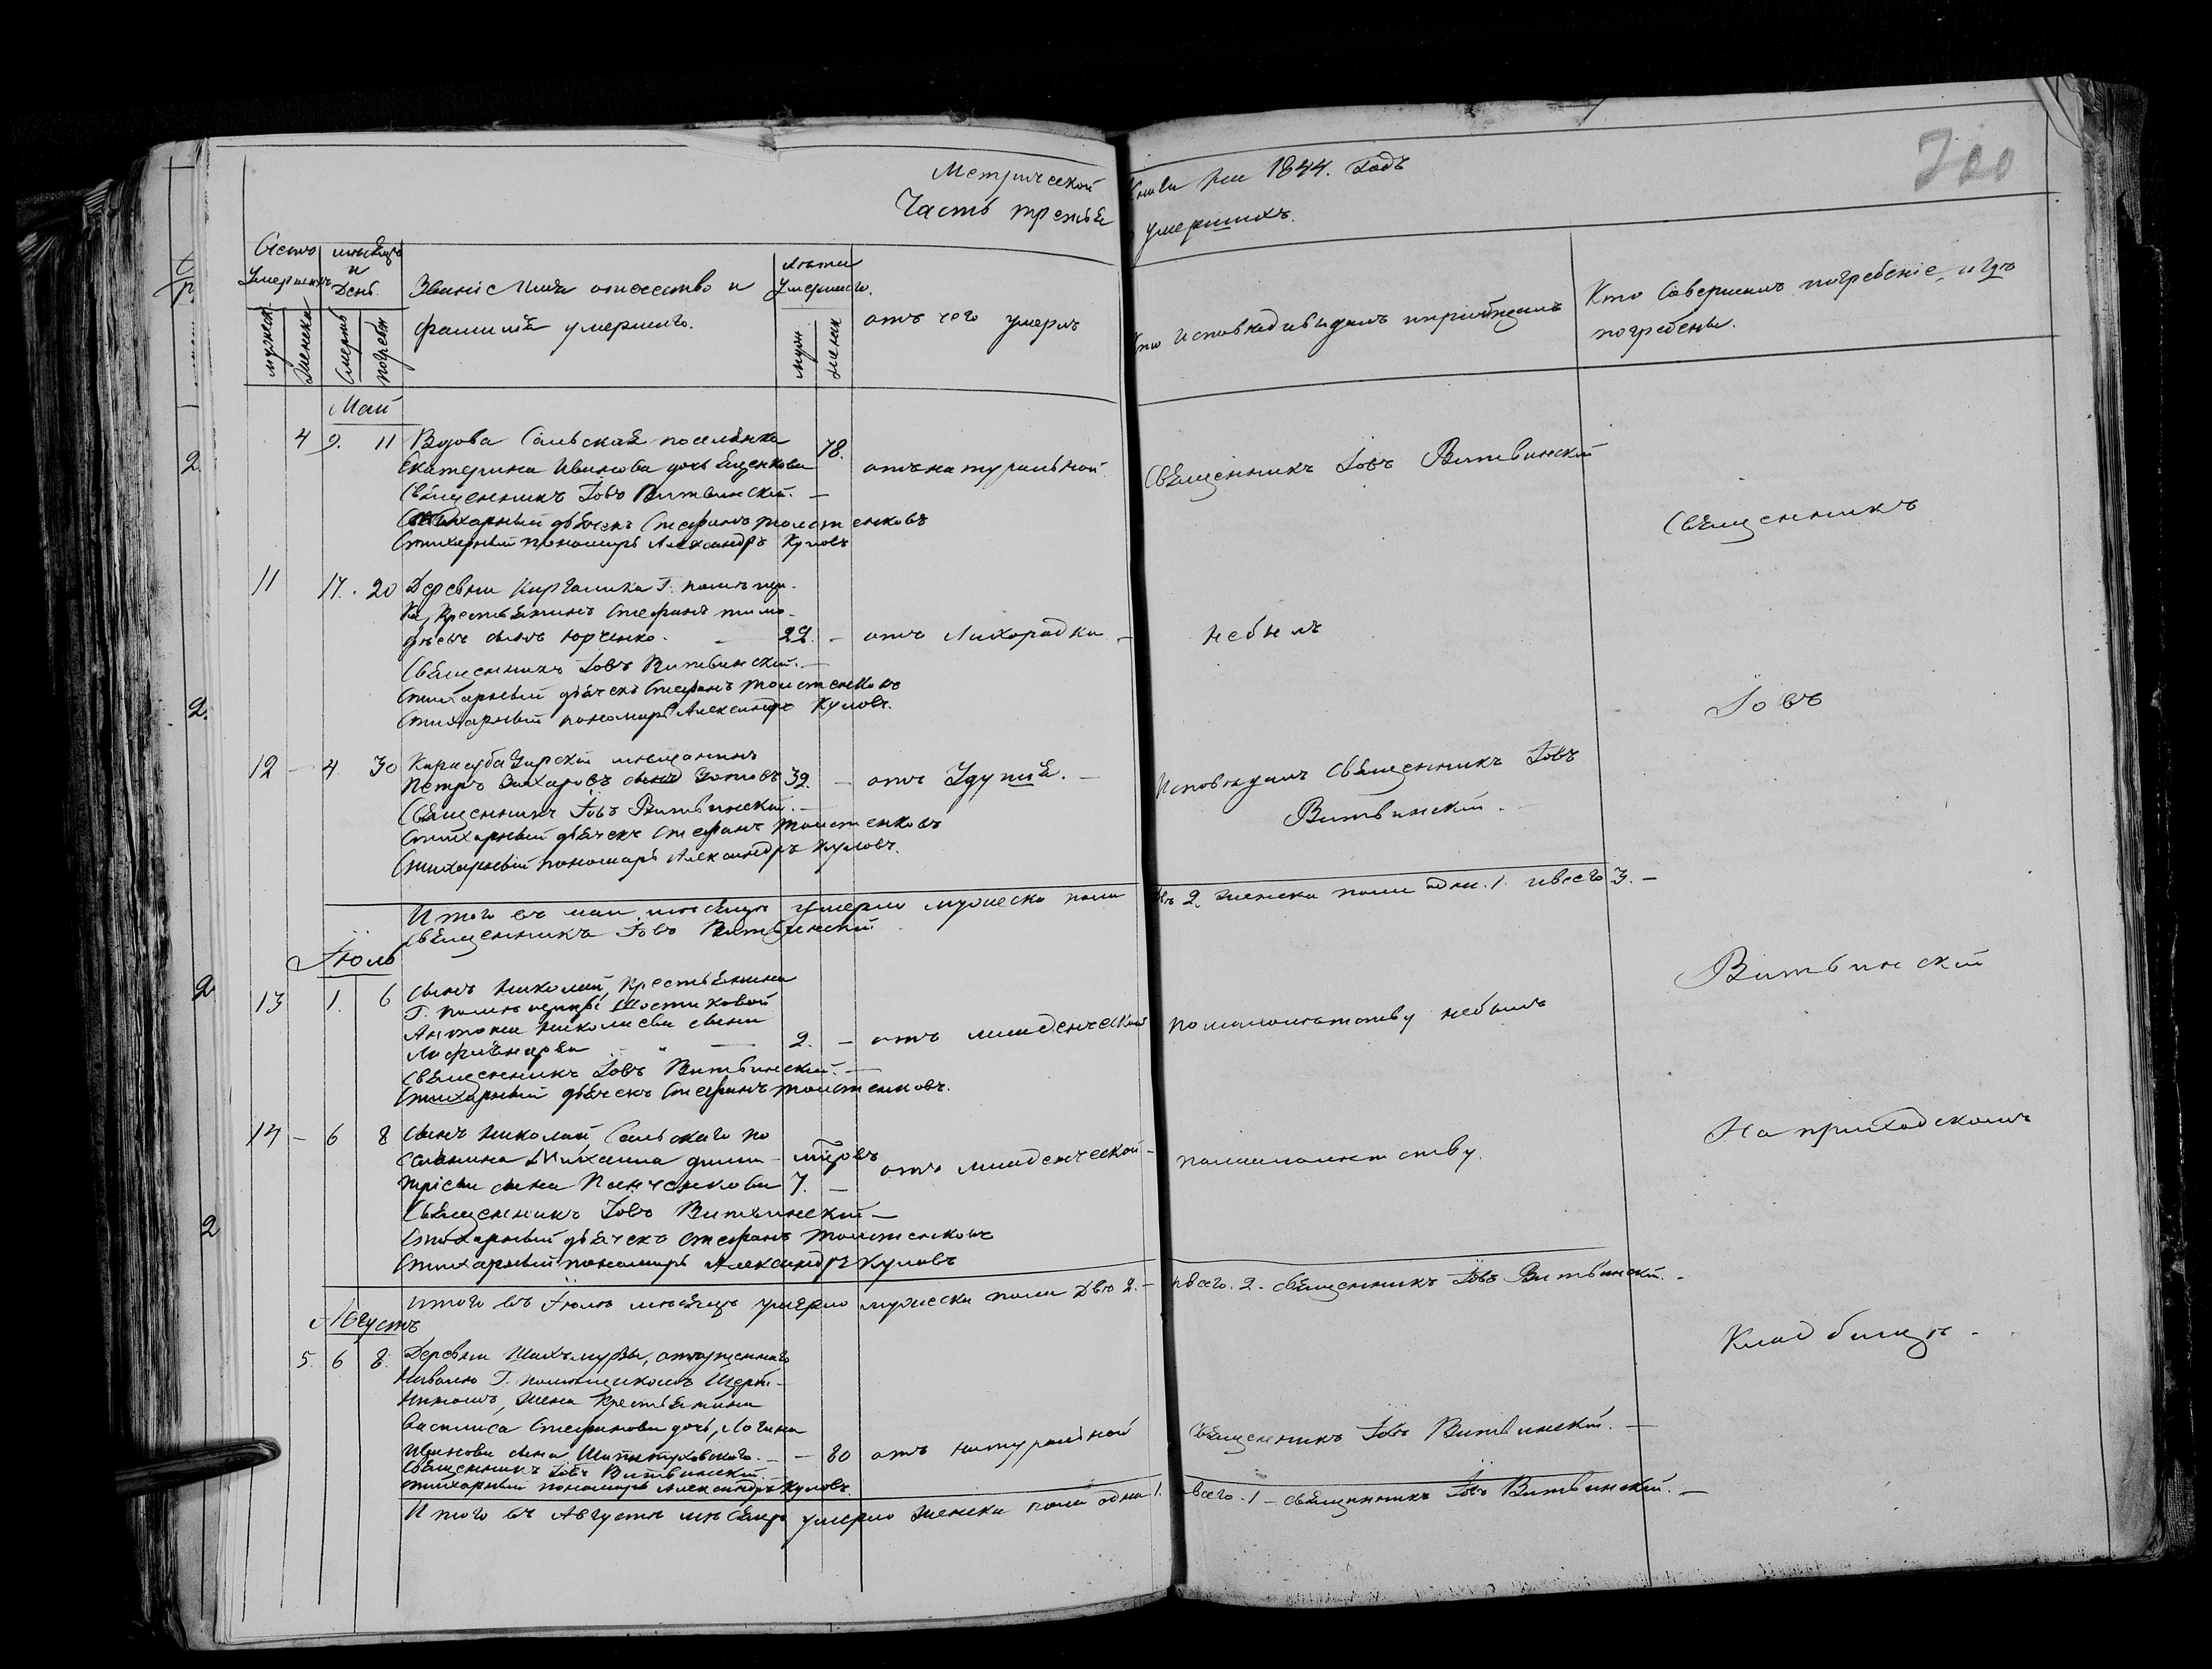 Метрической книги на 1844. Годъ
Часть третья умершихъ.
Счетъ умершихъ
мужеск.
женска
мѣсяцъ и день
смерть
погребен
Званіе Имя отечество и фамилія умершаго.
Лѣта умершаго.
муж.
женск
отъ чего умеръ
Кто исповѣдивывалъ и пріобщалъ
Кто Совершилъ погребеніе и гдѣ погребены.
Май
4 9. 11 Вдова Сельская поселянка
Екатерина Иванова дочь Яценкова 78. отъ натуральной Священникъ Іовъ Витвинскій
Священникъ Іовъ Витвинскій. —
Стихарный дьячекъ Стефанъ Толстенковъ
Стихарный пономарь Александръ Куловъ
11 17. 20 Деревни Г. помѣщи-
ка, крестьянинъ Стефанъ тимо-
фѣевъ сынъ Юрченко. — 22. — отъ Лихорадки — небылъ
Священникъ Іовъ Витвинскій. —
Стихарный дьячекъ Стефанъ Толстенковъ
Стихарный пономарь Александръ Куловъ.
12 — 4 30 Карасубазарскій мещанинъ
Петръ Захаровъ сынъ 32. — отъ Удушія. — Исповѣдалъ Священникъ Іовъ
Витвинскій. —
Священникъ Іовъ Витвинскій. —
Стихарный дьячекъ Стефанъ Толстенковъ
Стихарный пономарь Александръ Куловъ.
Итого въ маи мѣсяцѣ умерло мужеска пола два 2. женска пола одна. 1. и всего 3. —
Священникъ Іовъ Витвинскій
Іюль
13 1. 6 Сынъ Николай, Крестьянина
Г. помѣщицы Шостаковой
Антона Николаева сына
2. — отъ младенческой помалолѣтству небылъ
Священникъ Іовъ Витвинскій. —
Стихарный дьячекъ Стефанъ Толстенковъ.
14 — 6 8 Сынъ Николай, Сельскаго по
селянина Михаила дими-
тріева сына Панченкова мѣровъ 7. — отъ младенческой — помалолѣтству.
Священникъ Іовъ Витвинскій —
Стихарный дьячекъ Стефанъ Толстенковъ
Стихарный пономарь Александръ Куловъ
Итого въ Іюлѣ мѣсяцѣ умерло мужеска пола Два 2. — и всего. 2 — Священникъ Іовъ Витвинскій. —
Августъ
5. 6 8. Деревни Шахъ-мурзы, отпущеннаго
на волю Г. помѣщикомъ
жена Крестьянина
Василиса Стефанова дочь, Логина
Иванова сына — 80 отъ натуральной Священникъ Іовъ Витвинскій. —
Священникъ Іовъ Витвинскій.
Стихарный пономарь Александръ Куловъ.
Итого въ Августѣ мѣсяцѣ умерло женска пола одна 1. всего. 1 — Священникъ Іовъ Витвинскій. —
Священникъ
Іовъ
Витвинскій
На приходскомъ
Кладбищѣ.
2
2.
2
2